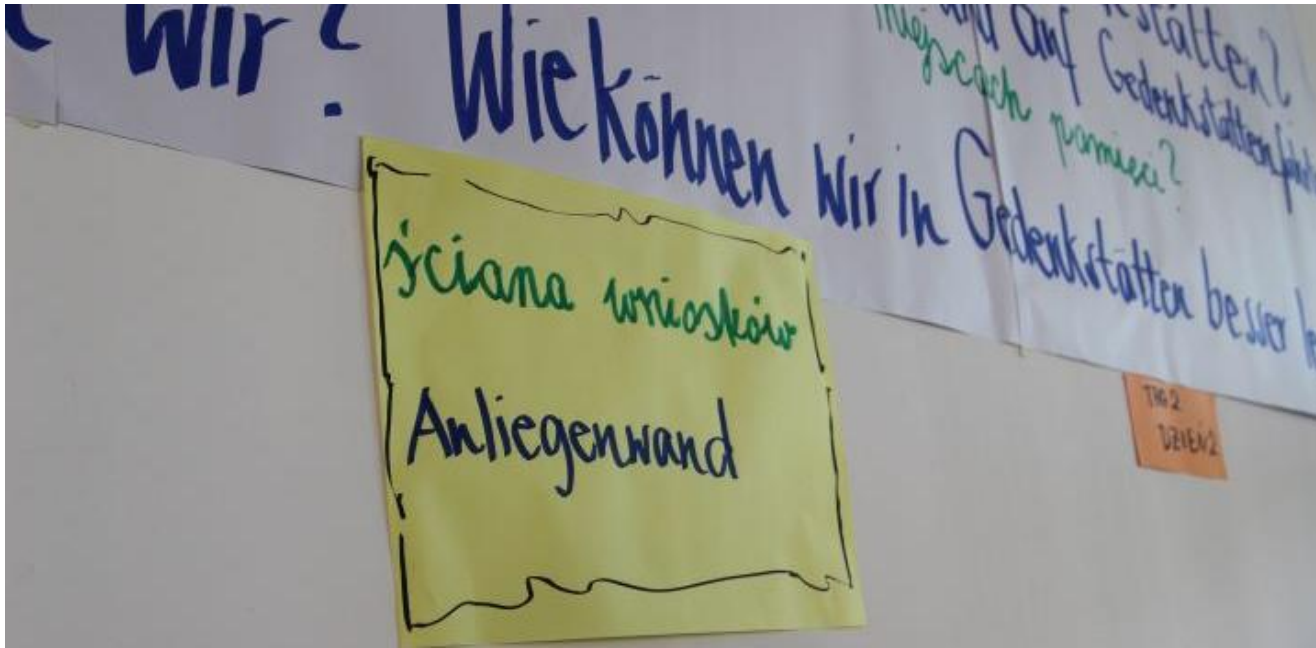 wir? Wie können wir in Gedenkstätten besser
und auf Gedenkstätten
miejscach pamięci?
ściana wniosków
Anliegenwand
TAG 2
DZIEŃ 2